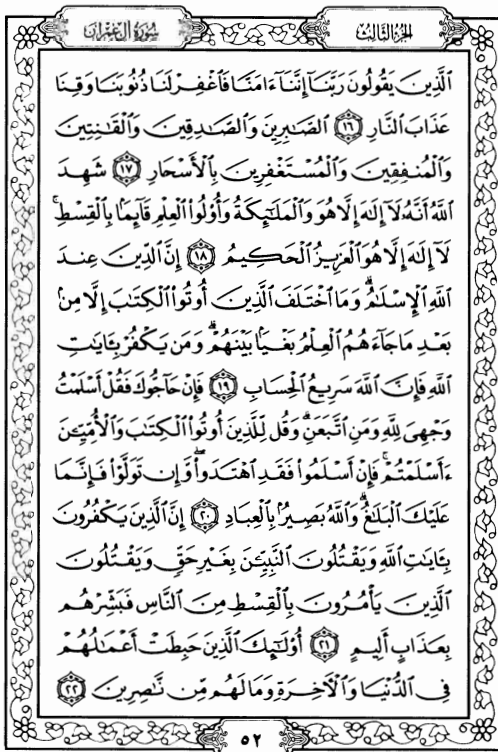 سُورَةُ آلِ عِمْرَان
الجُزْءُ الثَّالِثُ
ٱلَّذِينَ يَقُولُونَ رَبَّنَآ إِنَّنَآ ءَامَنَّا فَٱغْفِرْ لَنَا ذُنُوبَنَا وَقِنَا
عَذَابَ ٱلنَّارِ ١٦ ٱلصَّٰبِرِينَ وَٱلصَّٰدِقِينَ وَٱلْقَٰنِتِينَ
وَٱلْمُنفِقِينَ وَٱلْمُسْتَغْفِرِينَ بِٱلْأَسْحَارِ ١٧ شَهِدَ
ٱللَّهُ أَنَّهُۥ لَآ إِلَٰهَ إِلَّا هُوَ وَٱلْمَلَٰٓئِكَةُ وَأُو۟لُوا۟ ٱلْعِلْمِ قَآئِمًۢا بِٱلْقِسْطِ ۚ
لَآ إِلَٰهَ إِلَّا هُوَ ٱلْعَزِيزُ ٱلْحَكِيمُ ١٨ إِنَّ ٱلدِّينَ عِندَ
ٱللَّهِ ٱلْإِسْلَٰمُ ۗ وَمَا ٱخْتَلَفَ ٱلَّذِينَ أُوتُوا۟ ٱلْكِتَٰبَ إِلَّا مِنۢ
بَعْدِ مَا جَآءَهُمُ ٱلْعِلْمُ بَغْيًۢا بَيْنَهُمْ ۗ وَمَن يَكْفُرْ بِـَٔايَٰتِ
ٱللَّهِ فَإِنَّ ٱللَّهَ سَرِيعُ ٱلْحِسَابِ ١٩ فَإِنْ حَآجُّوكَ فَقُلْ أَسْلَمْتُ
وَجْهِىَ لِلَّهِ وَمَنِ ٱتَّبَعَنِ ۗ وَقُل لِّلَّذِينَ أُوتُوا۟ ٱلْكِتَٰبَ وَٱلْأُمِّيِّـۧنَ
ءَأَسْلَمْتُمْ ۚ فَإِنْ أَسْلَمُوا۟ فَقَدِ ٱهْتَدَوا۟ ۖ وَّإِن تَوَلَّوْا۟ فَإِنَّمَا
عَلَيْكَ ٱلْبَلَٰغُ ۗ وَٱللَّهُ بَصِيرٌۢ بِٱلْعِبَادِ ٢٠ إِنَّ ٱلَّذِينَ يَكْفُرُونَ
بِـَٔايَٰتِ ٱللَّهِ وَيَقْتُلُونَ ٱلنَّبِيِّـۧنَ بِغَيْرِ حَقٍّ وَيَقْتُلُونَ
ٱلَّذِينَ يَأْمُرُونَ بِٱلْقِسْطِ مِنَ ٱلنَّاسِ فَبَشِّرْهُم
بِعَذَابٍ أَلِيمٍ ٢١ أُو۟لَٰٓئِكَ ٱلَّذِينَ حَبِطَتْ أَعْمَٰلُهُمْ
فِى ٱلدُّنْيَا وَٱلْءَاخِرَةِ وَمَا لَهُم مِّن نَّٰصِرِينَ ٢٢
٥٢